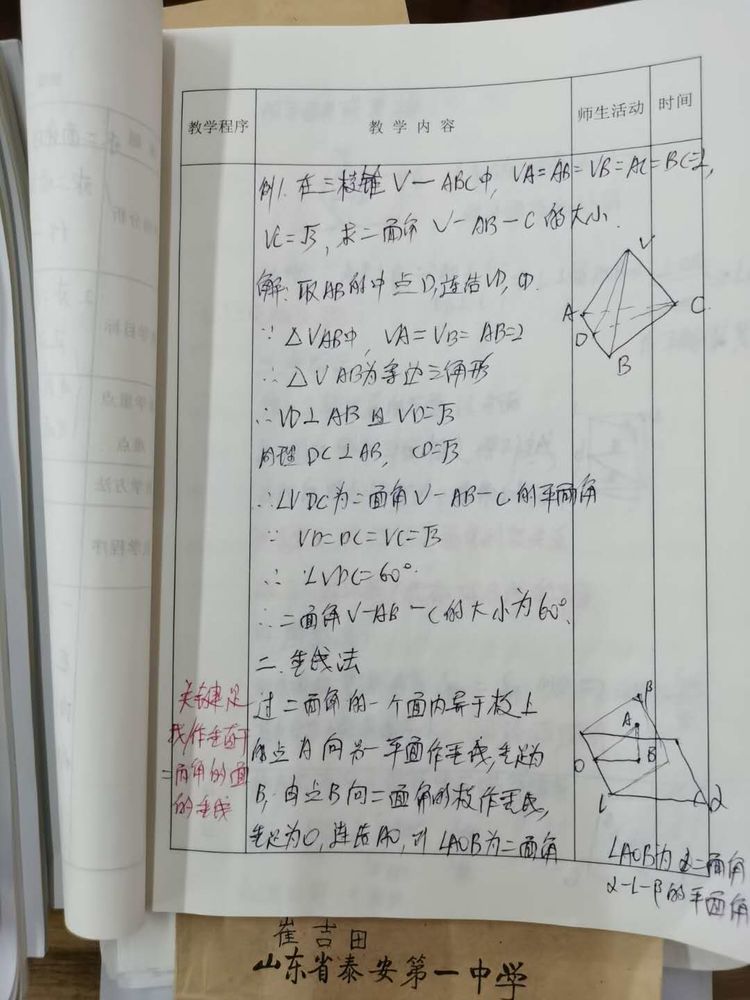 教学程序
教 学 内 容
师生活动
时间
例1. 在三棱锥 V—ABC中, VA=AB=VB=AC=BC=2,
VC=√3, 求二面角 V-AB-C 的大小.
解: 取AB的中点D,连结VD, CD.
∵ △VAB中, VA=VB=AB=2
∴ △VAB为等边三角形
∴ VD⊥AB 且 VD=√3
同理 DC⊥AB, CD=√3
∴∠VDC为二面角V-AB-C的平面角
∵ VD=DC=VC=√3
∴ ∠VDC=60°
∴二面角V-AB-C的大小为60°.
V
A
C
D
B
二. 垂线法
过二面角的一个面内异于棱上
的点A向另一平面作垂线,垂足为
B, 由点B向二面角的棱作垂线,
垂足为O, 连结AO, 则∠AOB为二面角
关键是
找/作垂直于
二面角的面
的垂线
β
A
O
B
L
α
∠AOB为二面角
α-L-β的平面角
崔吉田
山东省泰安第一中学